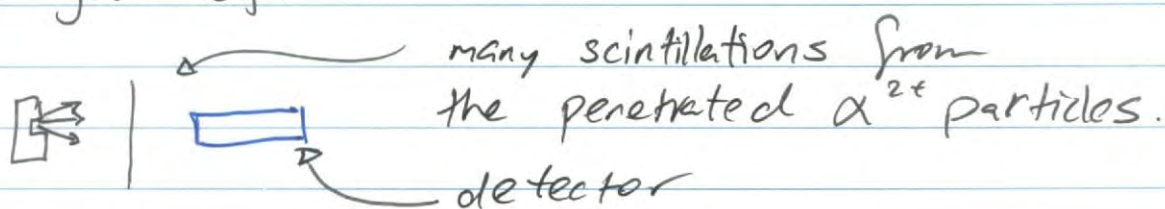 many scintillations from
the penetrated α²⁺ particles.
detector